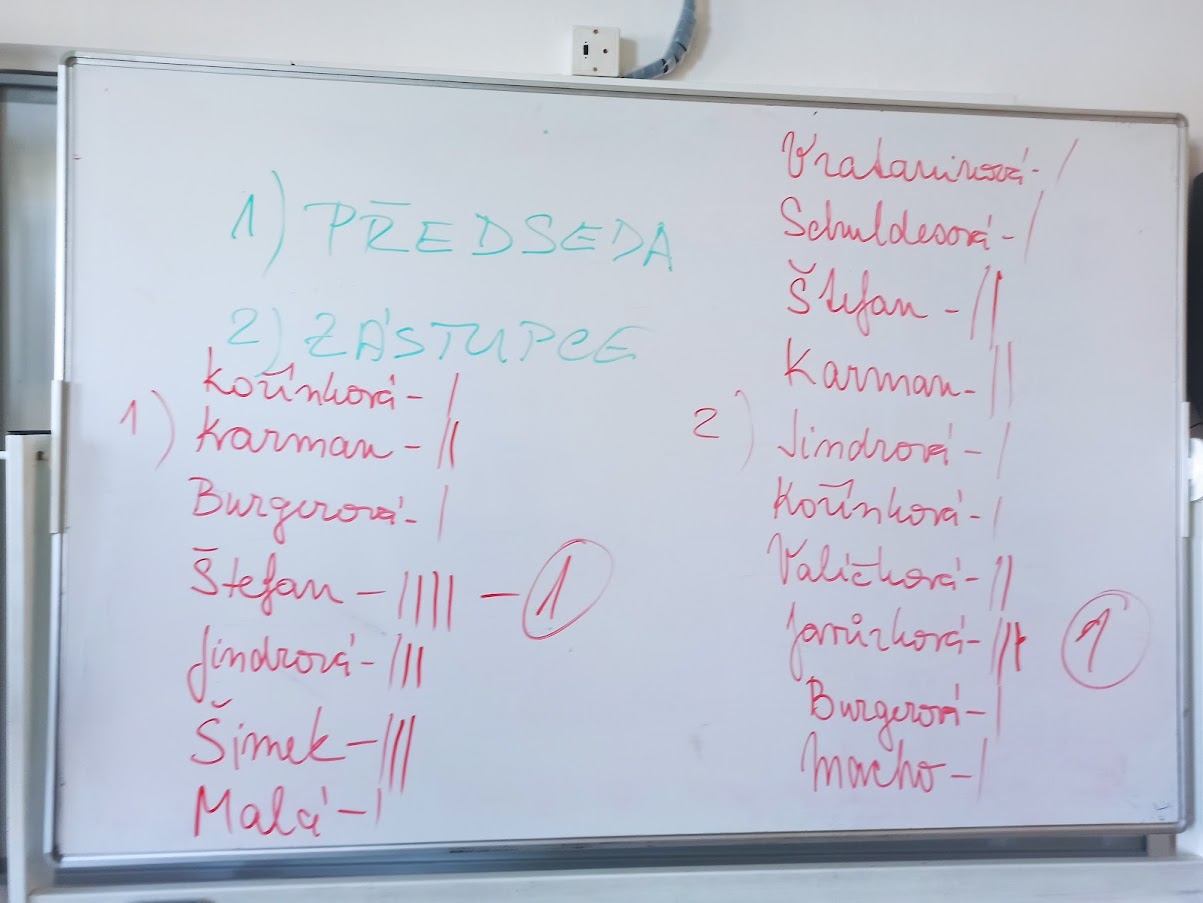 1) PŘEDSEDA
2) ZÁSTUPCE
1)
Kořínková - |
Karman - ||
Burgerová - |
Štefan - |||| - 1
Jindrová - |||
Šimek - |||
Malá - |
2)
Schuldesová - |
Štefan - ||
Karman - ||
Jindrová - |
Kořínková - |
Valíčková - ||
Janůrková - |||  1
Burgerová - |
Macho - |